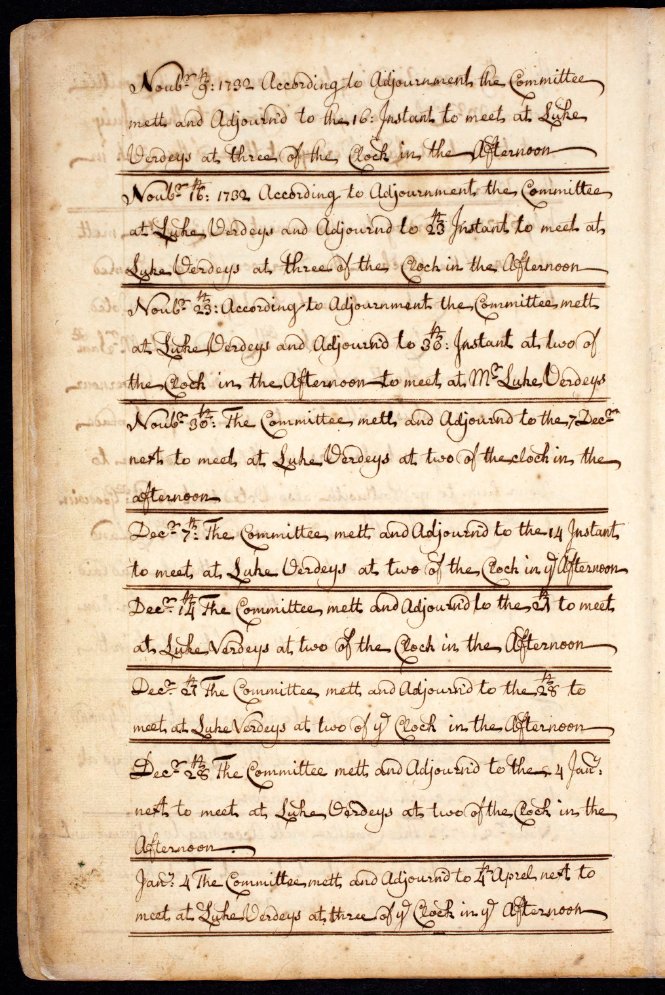 Noubr. 9th: 1732 According to Adjournment the Committee
mett and Adjourn'd to the 16: Instant to meet at Luke
Verdeys at three of the Clock in the Afternoon
Noubr. 16th: 1732 According to Adjournment the Committee
at Luke Verdeys and Adjournd to 23th Instant to meet at
Luke Verdeys at three of the Clock in the Afternoon
Noubr. 23th: According to Adjournment the Committee mett
at Luke Verdeys and Adjourn'd to 30th: Instant at two of
the Clock in the Afternoon to meet at Mr Luke Verdeys
Noubr. 30th: The Committee mett and Adjournd to the 7 Decr
next to meet at Luke Verdeys at two of the clock in the
afternoon
Decr. 7th: The Committee mett and Adjournd to the 14 Instant
to meet at Luke Verdeys at two of the Clock in ye Afternoon
Decr. 14th The Committee mett and Adjournd to the 21th to meet
at Luke Verdeys at two of the Clock in the Afternoon
Decr. 21th The Committee mett and Adjourn'd to the 28th to
meet at Luke Verdeys at two of ye Clock in the Afternoon
Decr. 28th The Committee mett and Adjourn'd to the 4 Jany:
next to meet at Luke Verdeys at two of the Clock in the
Afternoon.
Jany. 4 The Committee mett and Adjournd to 4th Aprel next to
meet at Luke Verdeys at three of ye Clock in ye Afternoon